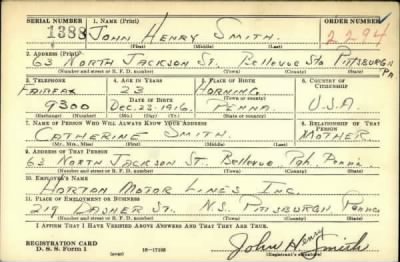 SERIAL NUMBER 1. NAME (Print) ORDER NUMBER
1388 JOHN HENRY SMITH. 2294
(First) (Middle) (Last)
2. ADDRESS (Print)
63 NORTH JACKSON ST. BELLEVUE Sta PITTSBURGH PA
(Number and street or R. F. D. number) (Town) (County) (State)
3. TELEPHONE 4. AGE IN YEARS 5. PLACE OF BIRTH 6. COUNTRY OF CITIZENSHIP
FAIRFAX 23 HORNING,
DATE OF BIRTH (Town or county)
9300 DEC. 23-1916. PENNA. U.S.A.
(Exchange) (Number) (Mo.) (Day) (Yr.) (State or country)
7. NAME OF PERSON WHO WILL ALWAYS KNOW YOUR ADDRESS 8. RELATIONSHIP OF THAT PERSON
CATHERINE SMITH. MOTHER.
(Mr., Mrs., Miss) (First) (Middle) (Last)
9. ADDRESS OF THAT PERSON
63 NORTH JACKSON ST. BELLEVUE, Pgh. Penn'a.
(Number and street or R. F. D. number) (Town) (County) (State)
10. EMPLOYER'S NAME
HORTON MOTOR LINES INC.
11. PLACE OF EMPLOYMENT OR BUSINESS
219 LASHER ST. N.S. PITTSBURGH PENNA
(Number and street or R. F. D. number) (Town) (County) (State)
I AFFIRM THAT I HAVE VERIFIED ABOVE ANSWERS AND THAT THEY ARE TRUE.
REGISTRATION CARD
D. S. S. Form 1 (over) 16-17105 John Henry Smith
(Registrant's signature)